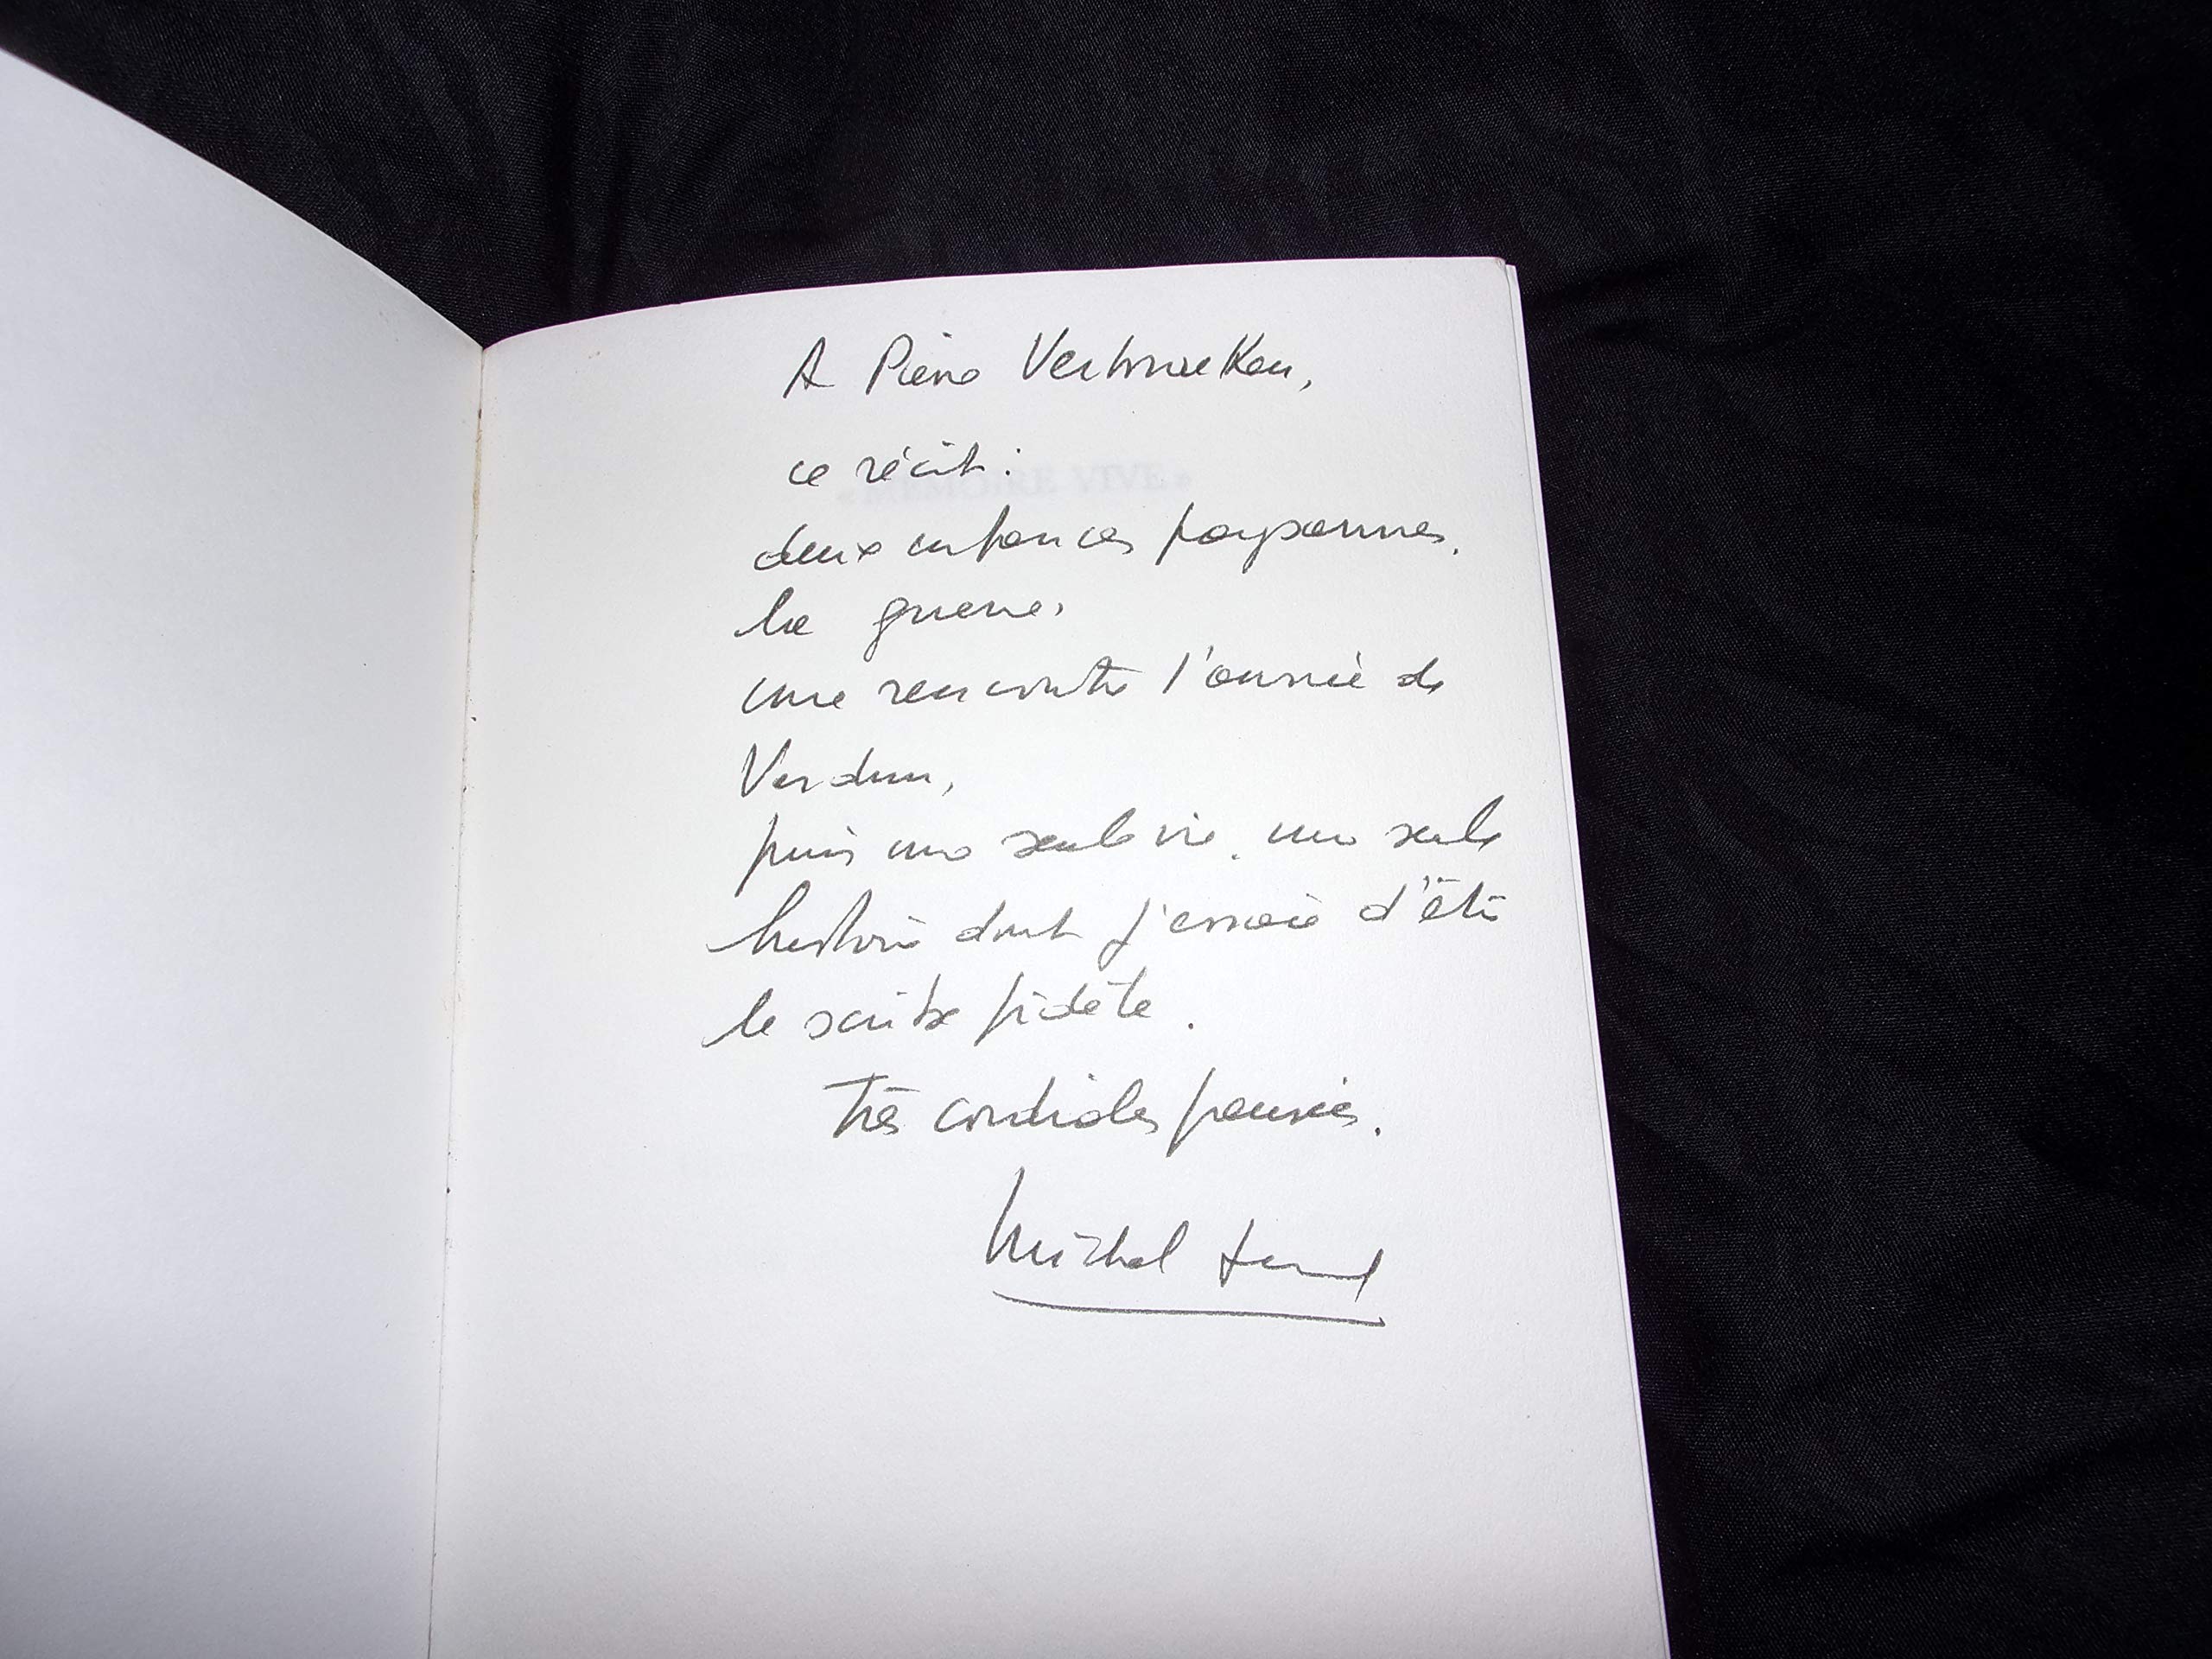 A Pierre Verbruecken,
ce récit :
« MÉMOIRE VIVE »
deux enfances paysannes,
la guerre,
une rencontre l'année de
Verdun,
puis une seule vie, une seule
histoire dont j'essaie d'être
le scribe fidèle.
Très cordiales pensées.
Michel